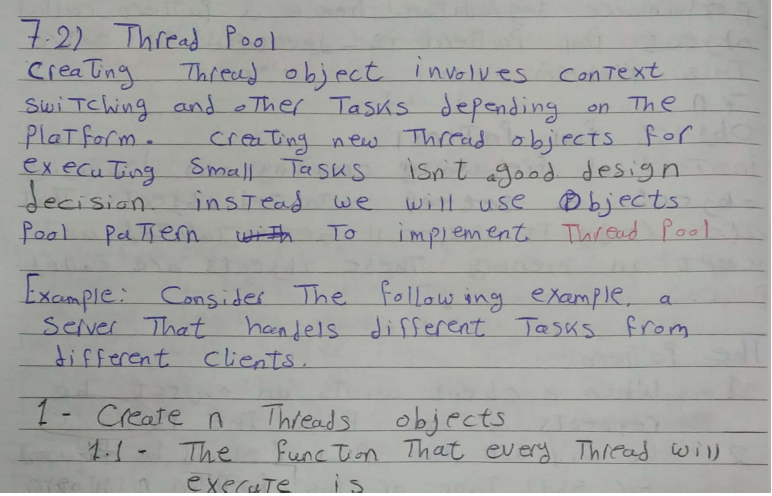 7.2) Thread Pool
Creating Thread object involves context
switching and other Tasks depending on The
Platform. creating new Thread objects for
executing small Tasks isn't a good design
decision. instead we will use Objects
Pool paTTern with To implement Thread Pool
Example: Consider The following example, a
Server That handels different Tasks from
different clients.
1 - Create n Threads objects
1.1 - The function That every Thread will
execute is